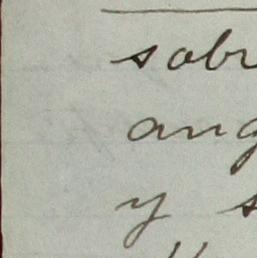 sobr
ang
y s